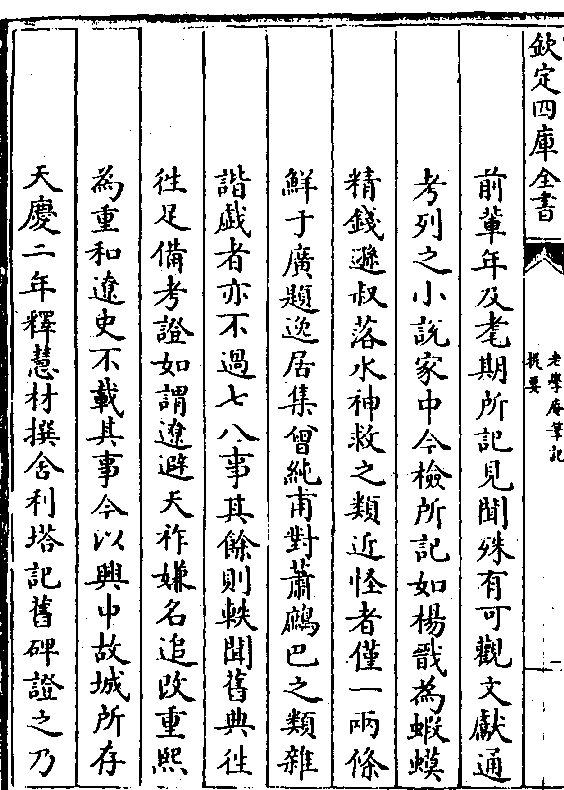 欽定四庫全書
老學庵筆記
提要
前輩年及耄期所記見聞殊有可觀文獻通
考列之小説家中今檢所記如楊戩為蝦蟆
精錢遜叔落水神救之類近怪者僅一兩條
鮮于廣題逸居集曾純甫對蕭鷓巴之類雜
諧戯者亦不過七八事其餘則軼聞舊典徃
徃足備考證如謂遼避天祚嫌名追改重熙
為重和遼史不載其事今以興中故城所存
天慶二年釋慧材撰舍利塔記舊碑證之乃
一